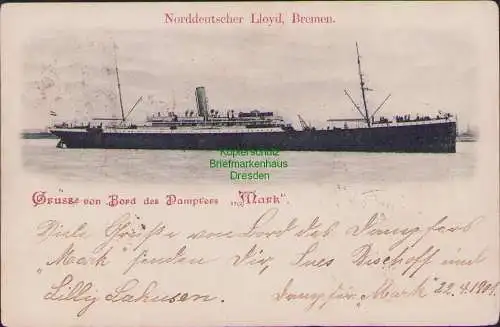 Norddeutscher Lloyd, Bremen.
Kopierschutz
Briefmarkenhaus
Dresden
Grüsse von Bord des Dampfers „Mark“.
Viele Grüße von Bord des Dampfers
„Mark“ senden Dir, Bischoff und
Lilly Dampfer „Mark“ 22.4.1901